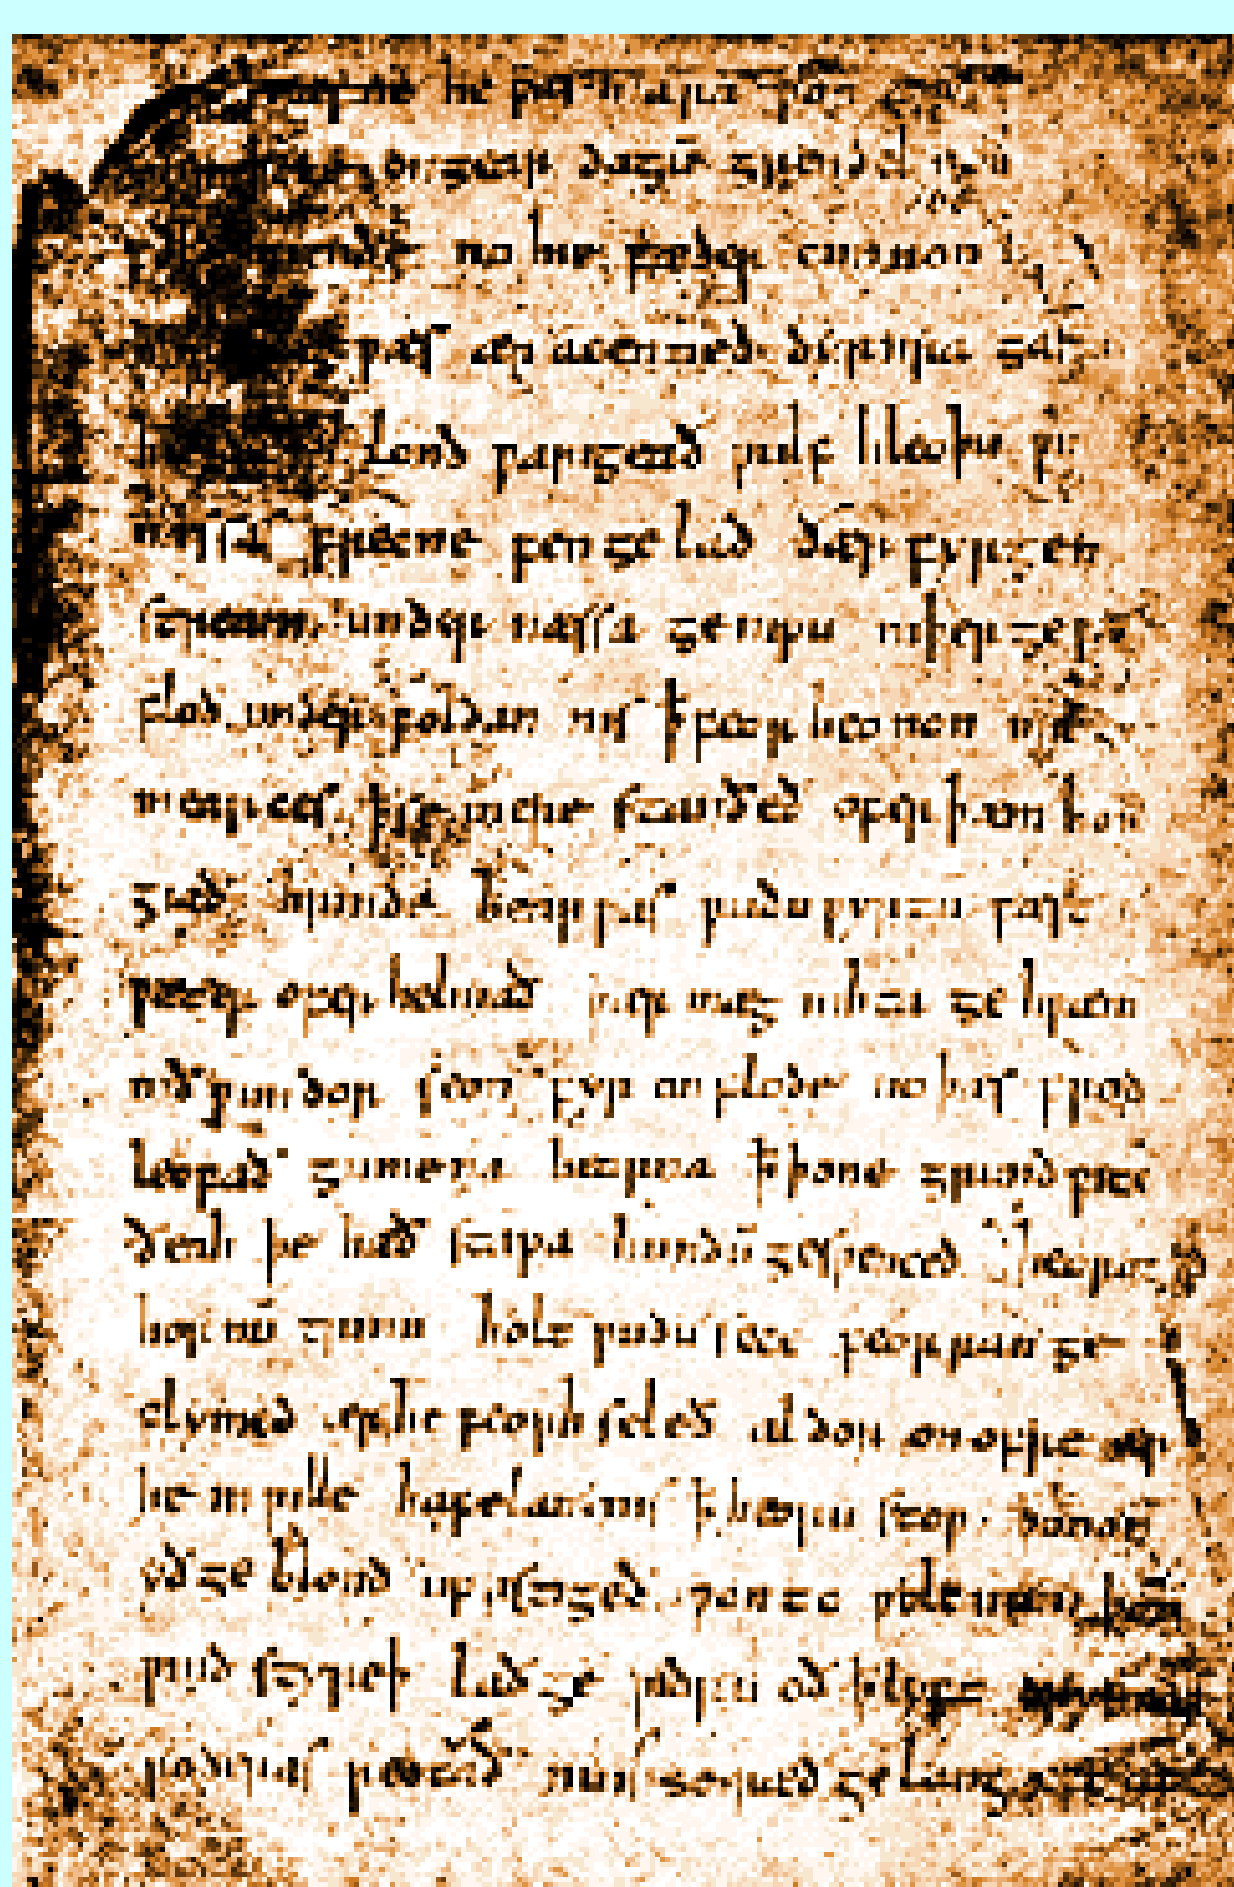 næfne he ƿæs mara þoñ ænig
on gear dagū grendel
buende no hie fæder cunnon
ƿæs ær acenned dyrnra gasta
lond ƿarigeað ƿulf hleoþu ƿin
næssas frecne fen gelad ðær fyrgen
stream under næssa genipu niþer geƿiteð
flod under foldan nis ꝥ feor heonon mil ge
mearces ꝥ se mere standeð ofer þæm hon
giað hrinde bearƿas ƿudu ƿyrtū fæst
ƿæter ofer helmað þær mæg nihta ge hƿæm
nið ƿundor seon fyr on flode no þæs frod
leofað gumena bearna ꝥ þone grund ƿite
ðeah þe hæð stapa hundū gesƿenced heorot
hornū trum holt ƿudu sece feorran ge
flymed ær he feorh seleð aldor on ofre ær
he in ƿille hafelan nis ꝥ heoru stoƿ þonon
yð ge blond up astigeð ƿon to ƿolcnum þoñ
ƿind styreþ lað ge ƿidru oð ꝥ lyft drysmaþ
roderas reotað nu is se ræd ge lang eft æt þe